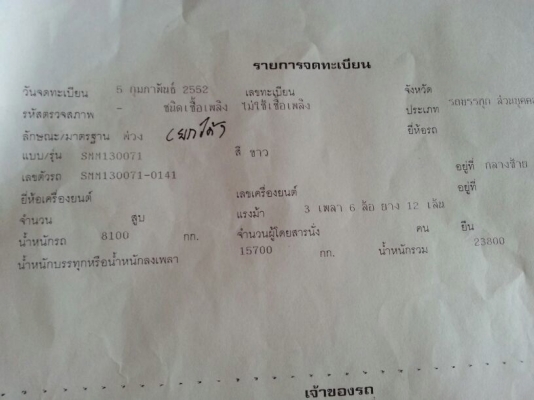 รายการจดทะเบียน
วันจดทะเบียน 5 กุมภาพันธ์ 2552 เลขทะเบียน จังหวัด
รหัสตรวจสภาพ - ชนิดเชื้อเพลิง ไม่ใช้เชื้อเพลิง ประเภท รถบรรทุก ส่วนบุคคล
ลักษณะ/มาตรฐาน พ่วง (ยกได้) ยี่ห้อรถ
แบบ/รุ่น SMM130071 สี ขาว
เลขตัวรถ SMM130071-0141 อยู่ที่ กลางซ้าย
ยี่ห้อเครื่องยนต์ เลขเครื่องยนต์ อยู่ที่
จำนวน สูบ แรงม้า 3 เพลา 6 ล้อ ยาง 12 เส้น
น้ำหนักรถ 8100 กก. จำนวนผู้โดยสารนั่ง คน ยืน
น้ำหนักบรรทุกหรือน้ำหนักลงเพลา 15700 กก. น้ำหนักรวม 23800
เจ้าของรถ